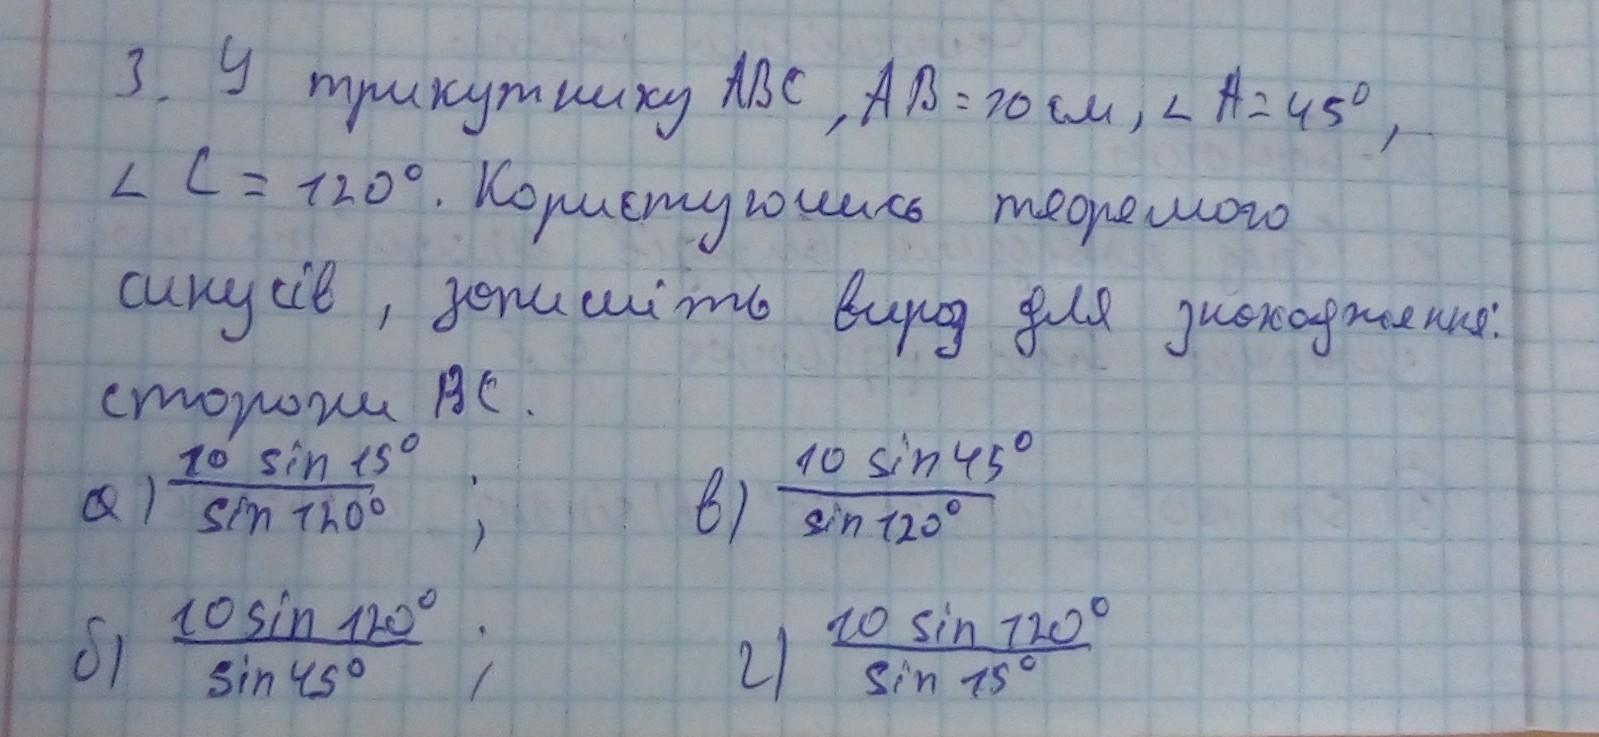 3. У трикутнику ABC, AB = 10 см, ∠ A = 45°,
∠ C = 120°. Користуючись теоремою
синусів, запишіть вираз для знаходження:
сторони BC.
а) 10 sin 15° / sin 120° ; в) 10 sin 45° / sin 120°
б) 10 sin 120° / sin 45° ; г) 10 sin 120° / sin 15°